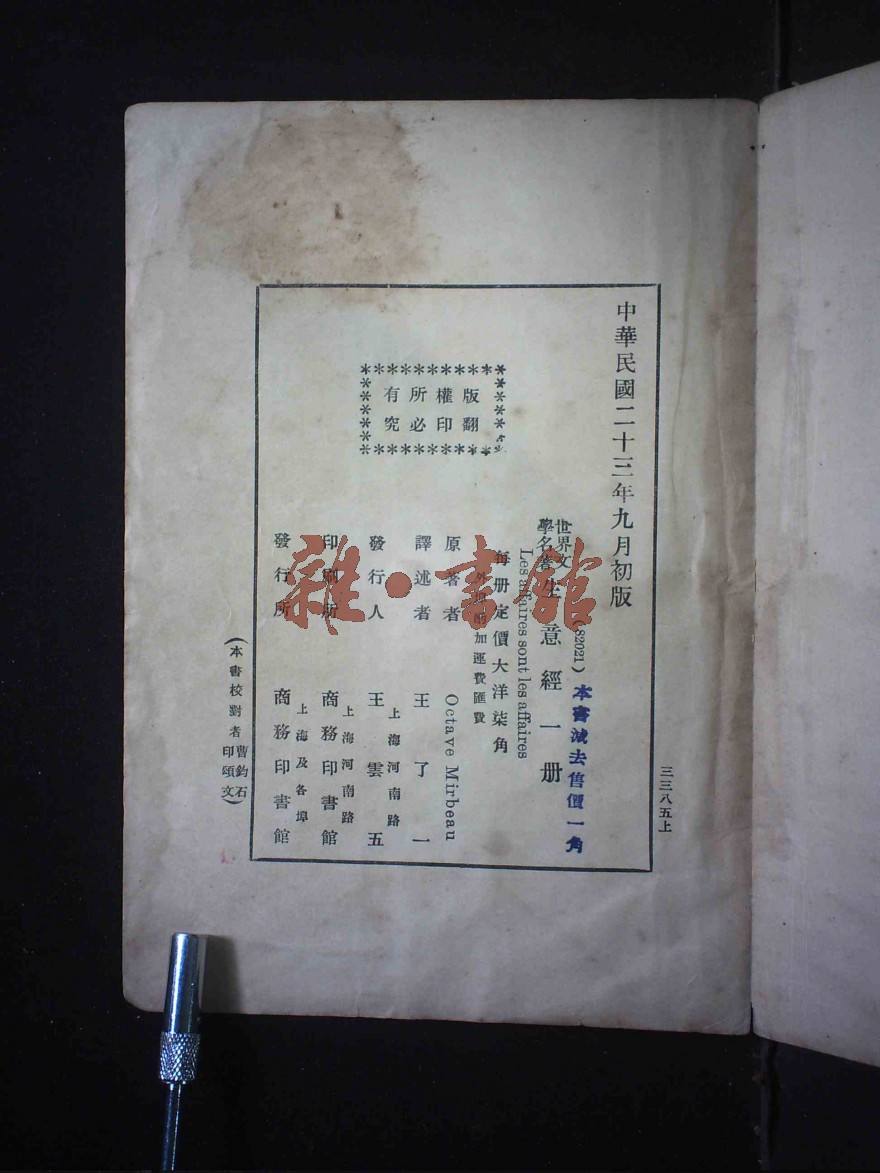 中華民國二十三年九月初版
三三八五上
版權所有
翻印必究
(82021)
本書減去售價一角
世界文學名著
生意經一册
Les affaires sont les affaires
每册定價大洋柒角
外埠酌加運費匯費
原著者 Octave Mirbeau
譯述者 王了一
上海河南路
發行人 王雲五
上海河南路
印刷所 商務印書館
上海及各埠
發行所 商務印書館
(本書校對者曹鈞石印頌文)
雜·書館